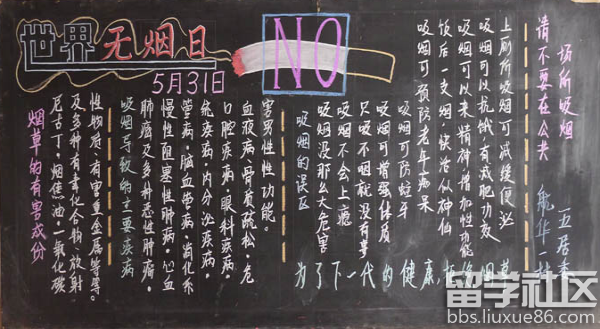 世界无烟日
5月31日
NO
烟草的有害成份
尼古丁，烟焦油，一氧化碳
及多种有毒化合物，放射
性物质，有害重金属等等。
吸烟导致的主要疾病
肺癌及多种恶性肿瘤，
慢性阻塞性肺病，心血
管病，脑血管病，消化系
统疾病，内分泌疾病，
口腔疾病，眼科疾病，
血液病，骨质疏松，危
害男性性功能。
吸烟的误区
吸烟没那么大危害
吸烟不会上瘾
只吸不咽就没有事
吸烟可增强体质
吸烟可防蛀牙
吸烟可预防老年痴呆
饭后一支烟，快活似神仙
吸烟可以来精神增加性功能
吸烟可以抗饿，有减肥功效
上厕所吸烟可减缓便泌
请不要在公共
场所吸烟
为了下一代的健康
航华一村
五居委
留学社区
bbs.liuxue86.com